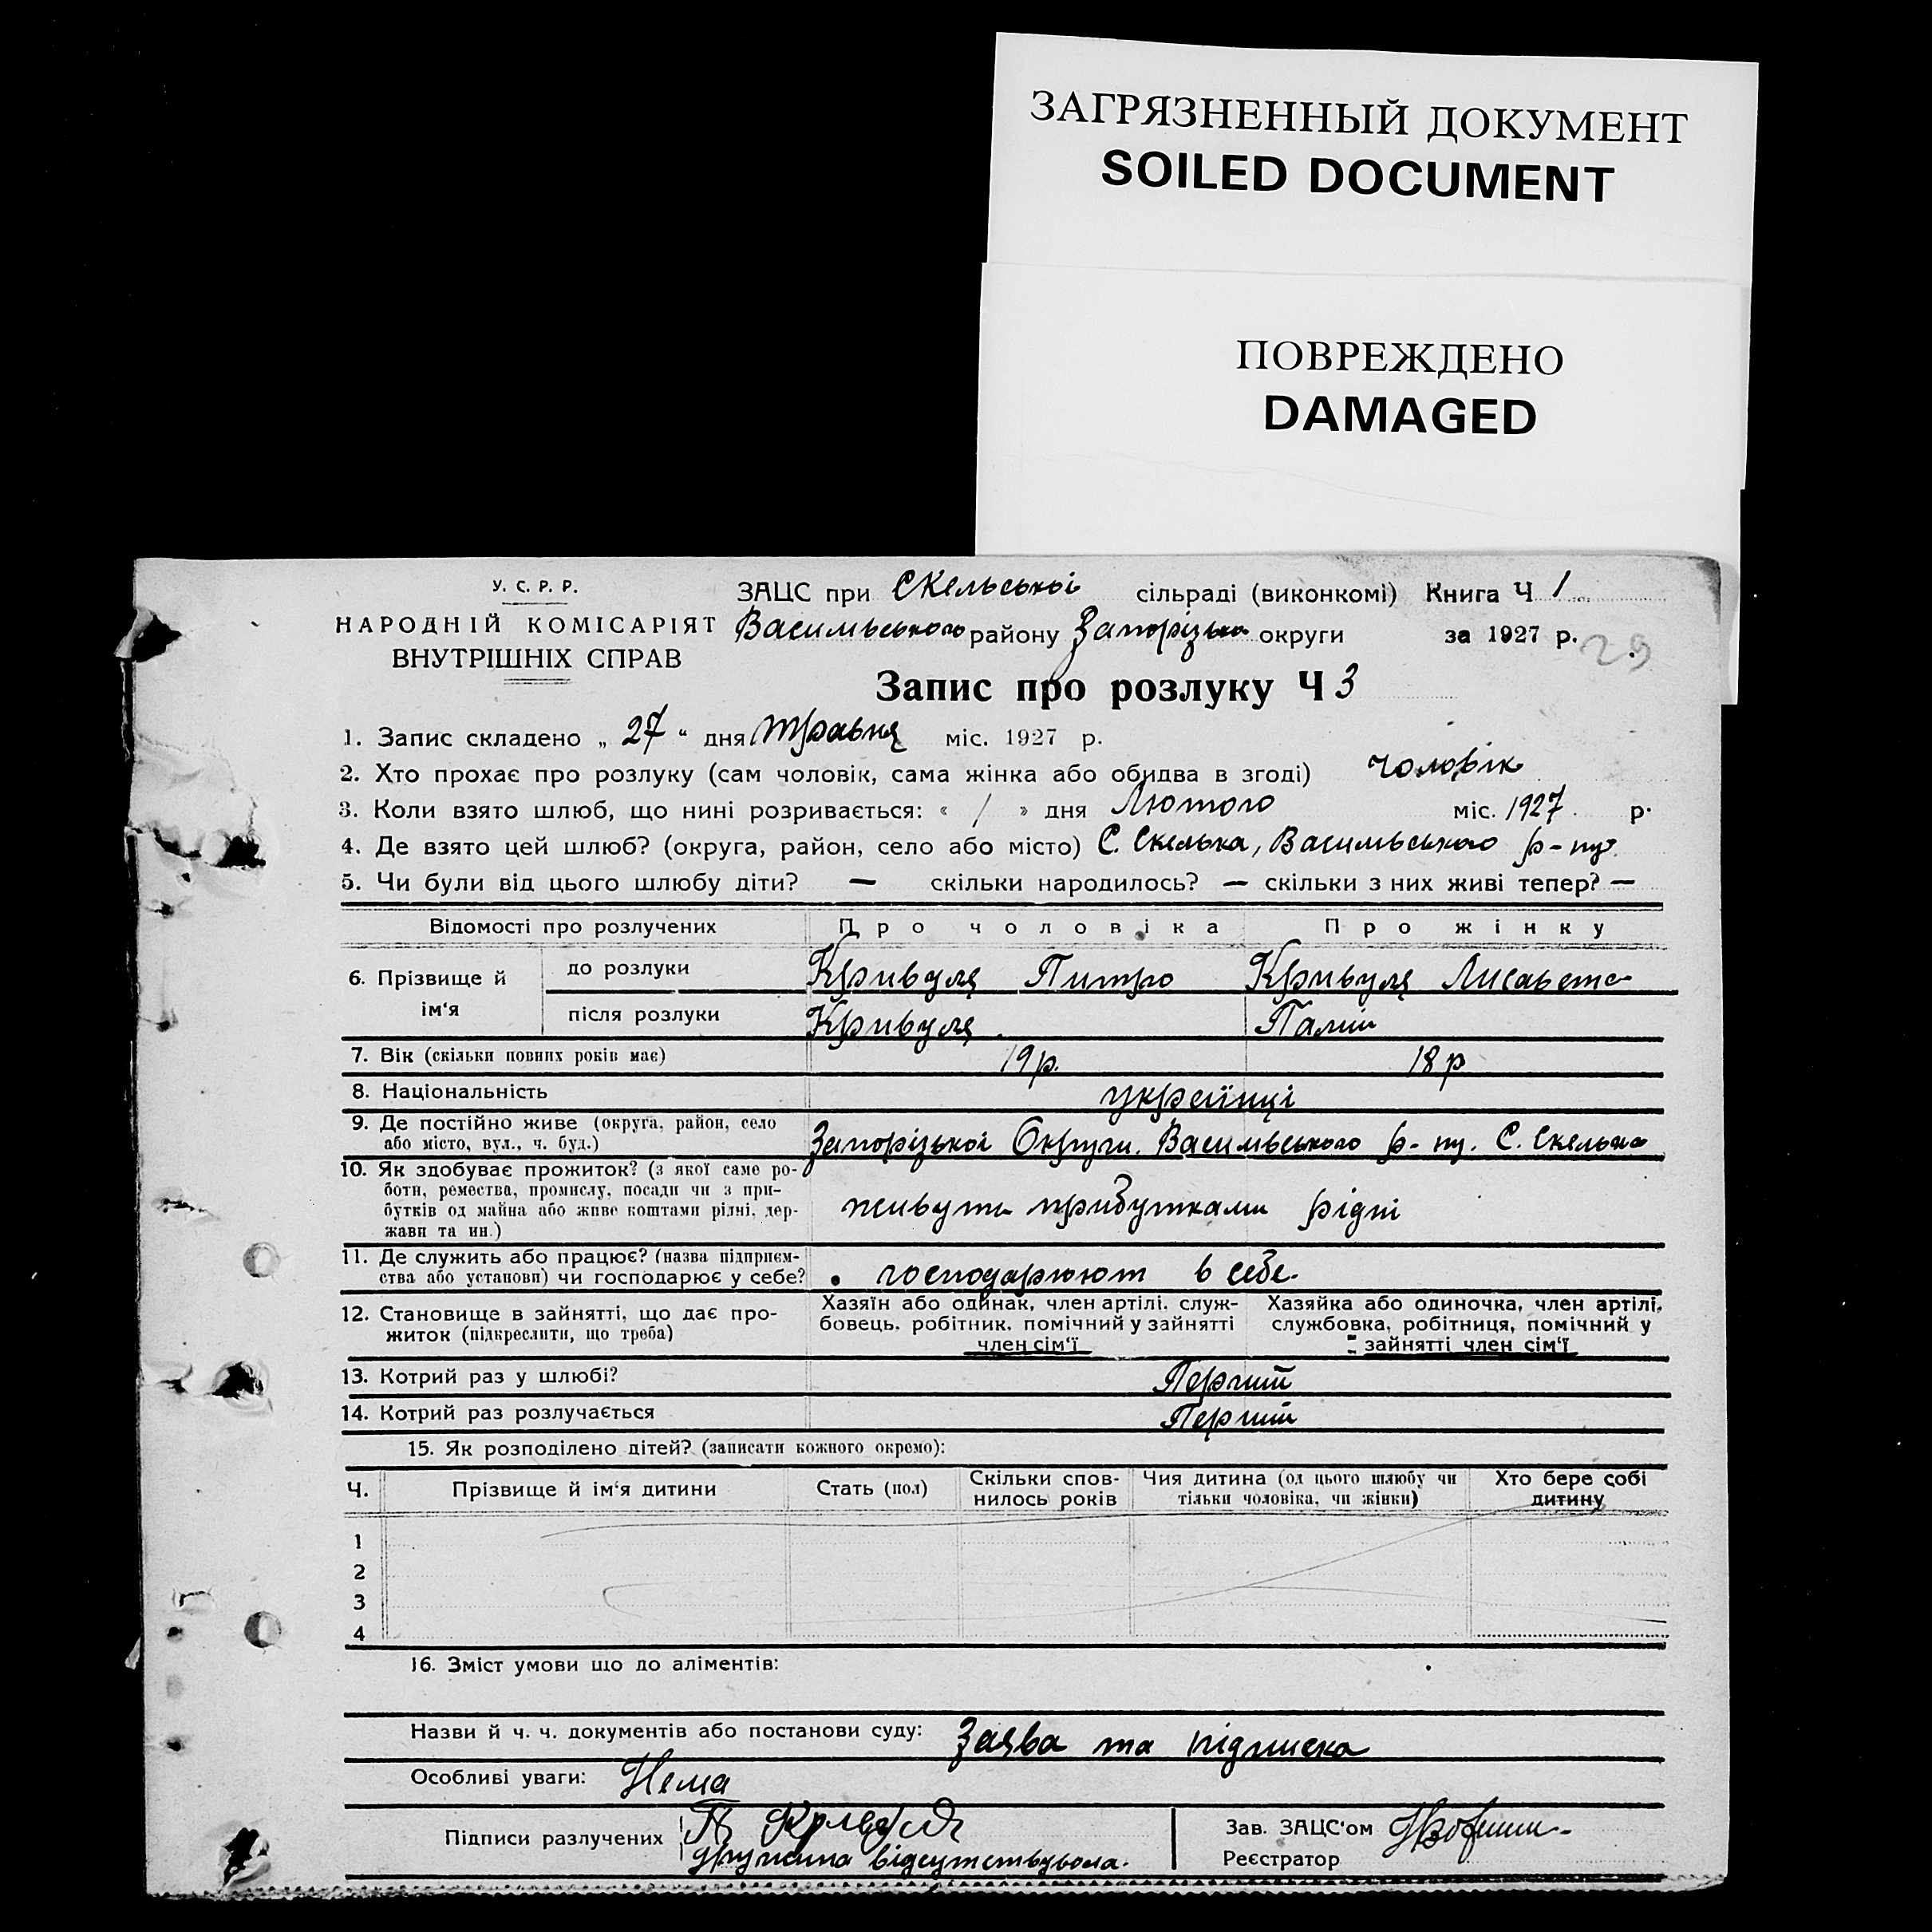 ЗАГРЯЗНЕННЫЙ ДОКУМЕНТ
SOILED DOCUMENT
ПОВРЕЖДЕНО
DAMAGED
У. С. Р. Р.
НАРОДНІЙ КОМІСАРІЯТ
ВНУТРІШНІХ СПРАВ
ЗАЦС при Скельської сільраді (виконкомі) Книга Ч 1
Васильського району Запорізько округи за 1927 р.
29
Запис про розлуку Ч 3
1. Запис складено „ 27 “ дня Травня міс. 1927 р.
2. Хто прохає про розлуку (сам чоловік, сама жінка або обидва в згоді) чоловік
3. Коли взято шлюб, що нині розривається: « 1 » дня Лютого міс. 1927 р.
4. Де взято цей шлюб? (округа, район, село або місто) С. Скелька, Васильського р-ну.
5. Чи були від цього шлюбу діти? — скільки народилось? — скільки з них живі тепер? —
Відомості про розлучених Про чоловіка Про жінку
6. Прізвище й ім‘я
до розлуки Кривуля Питро Кривуля Лисавета
після розлуки Кривуля. Палій
7. Вік (скільки повних років має) 19 р. 18 р
8. Національність українці
9. Де постійно живе (округа, район, село
або місто, вул., ч. буд.) Запорізької Округи. Васильського р-ну. С. Скелька
10. Як здобуває прожиток? (з якої саме ро-
боти, ремества, промислу, посади чи з при-
бутків од майна або живе коштами рідні, дер-
жави та ин.) живуть прибутками рідні
11. Де служить або працює? (назва підприєм-
ства або установи) чи господарює у себе? господарюют в себе.
12. Становище в зайнятті, що дає про-
житок (підкреслити, що треба)
Хазяїн або одинак, член артілі, служ-
бовець, робітник, помічний у зайнятті
член сім‘ї
Хазяйка або одиночка, член артілі,
службовка, робітниця, помічний у
зайнятті член сім‘ї
13. Котрий раз у шлюбі? Перший
14. Котрий раз розлучається Перший
15. Як розподілено дітей? (записати кожного окремо):
Ч. Прізвище й ім‘я дитини Стать (пол) Скільки спов-
нилось років Чия дитина (од цього шлюбу чи
тільки чоловіка, чи жінки) Хто бере собі
дитину
1
2
3
4
16. Зміст умови що до аліментів:
Назви й ч. ч. документів або постанови суду: Заява та підписка
Особливі уваги: Нема
Підписи разлучених П Кривуля
дружина відсутствувала.
Зав. ЗАЦС‘ом
Реєстратор